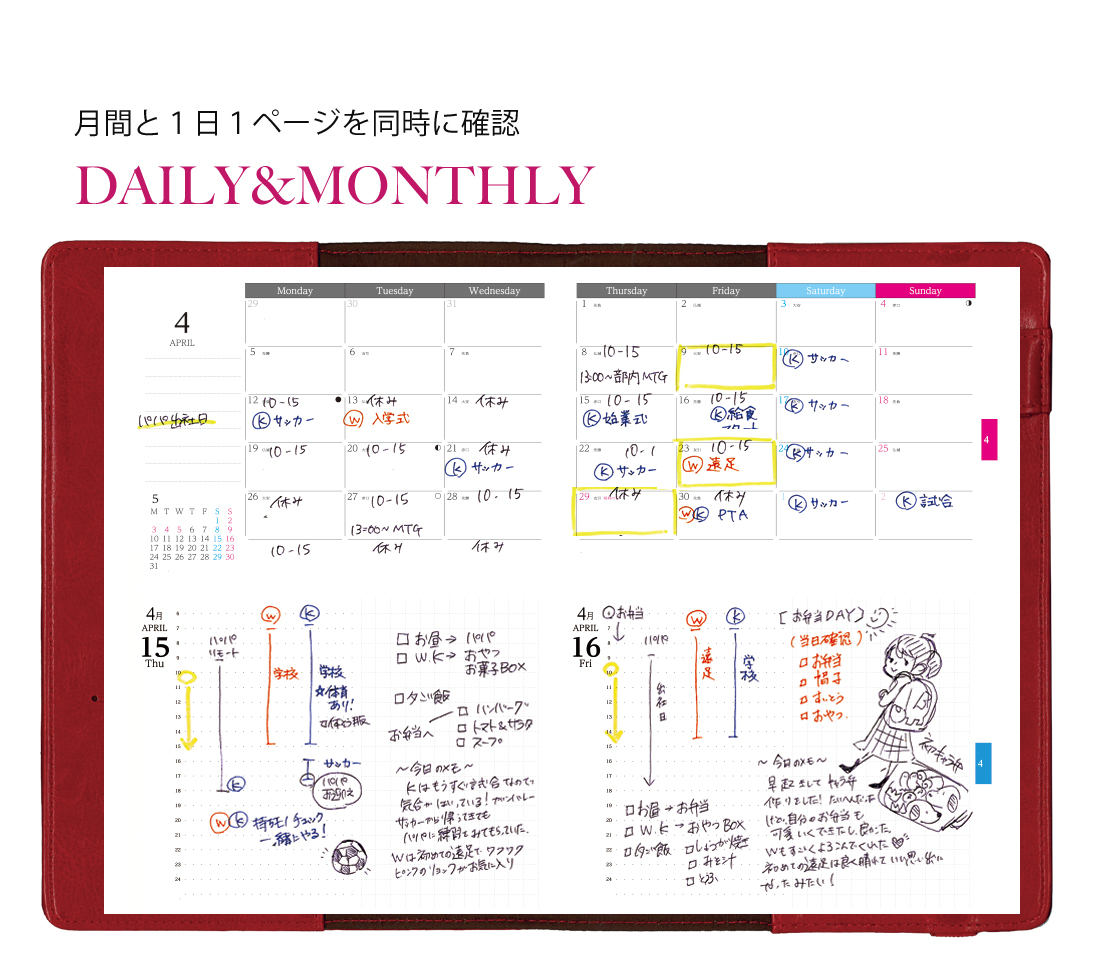 月間と１日１ページを同時に確認
DAILY&MONTHLY
Monday Tuesday Wednesday
Thursday Friday Saturday Sunday
4
APRIL
29 30 31
1 2 3 4
5 6 7
8 10-15
13:00~部内MTG
9 10-15
10 K サッカー
11
パパ出社日
12 10-15
K サッカー
13 休み
W 入学式
14 休み
15 10-15
K 始業式
16 10-15
K 給食
スタート
17 K サッカー
18
19 10-15
20 10-15
21 休み
K サッカー
22 10-1
K サッカー
23 10-15
W 遠足
24 K サッカー
25
26 休み
27 10-15
13:00~MTG
28 10-15
29 休み
30 休み
W K PTA
1 K サッカー
2 K 試合
10-15 休み 休み
5
M T W T F S S
1 2
3 4 5 6 7 8 9
10 11 12 13 14 15 16
17 18 19 20 21 22 23
24 25 26 27 28 29 30
31
4
4月
APRIL
15
Thu
6
7
8
9
10
11
12
13
14
15
16
17
18
19
20
21
22
23
24
パパ
リモート
W
学校
K
学校
☆体育
あり!
□体そう服
サッカー
パパ
お迎え
K
W K 持ちモノチェック
一緒にやる!
□ お昼→パパ
□ W.K→おやつ
お菓子BOX
□夕ご飯
お弁当へ
□ ハンバーグ
□ トマト&サラダ
□ スープ
～今日のメモ～
Kはもうすぐ試合なので
気合がはいっている!
サッカーから帰ってきても
パパに練習をみてもらっていた。
Wは初めての遠足でワクワク
ピンクのリュックがお気に入り
4月
APRIL
16
Fri
7
8
9
10
11
12
13
14
15
16
17
18
19
20
21
22
23
24
お弁当
パパ
出社日
W
遠足
K
学校
[お弁当DAY]
(当日確認)
□ お弁当
□ 帽子
□ すいとう
□ おやつ
初キャラ弁
□お昼→お弁当
□ W.K→おやつBOX
□夕ご飯
□しょうが焼き
□ みそ汁
□ とうふ
～今日のメモ～
早起きしてキャラ弁
作りました!たいへんだった
けど、自分のお弁当も
可愛いくできたし、良かった。
Wもすごくよろこんでくれた♡
初めての遠足は良く晴れていい思い出に
なったみたい!
4